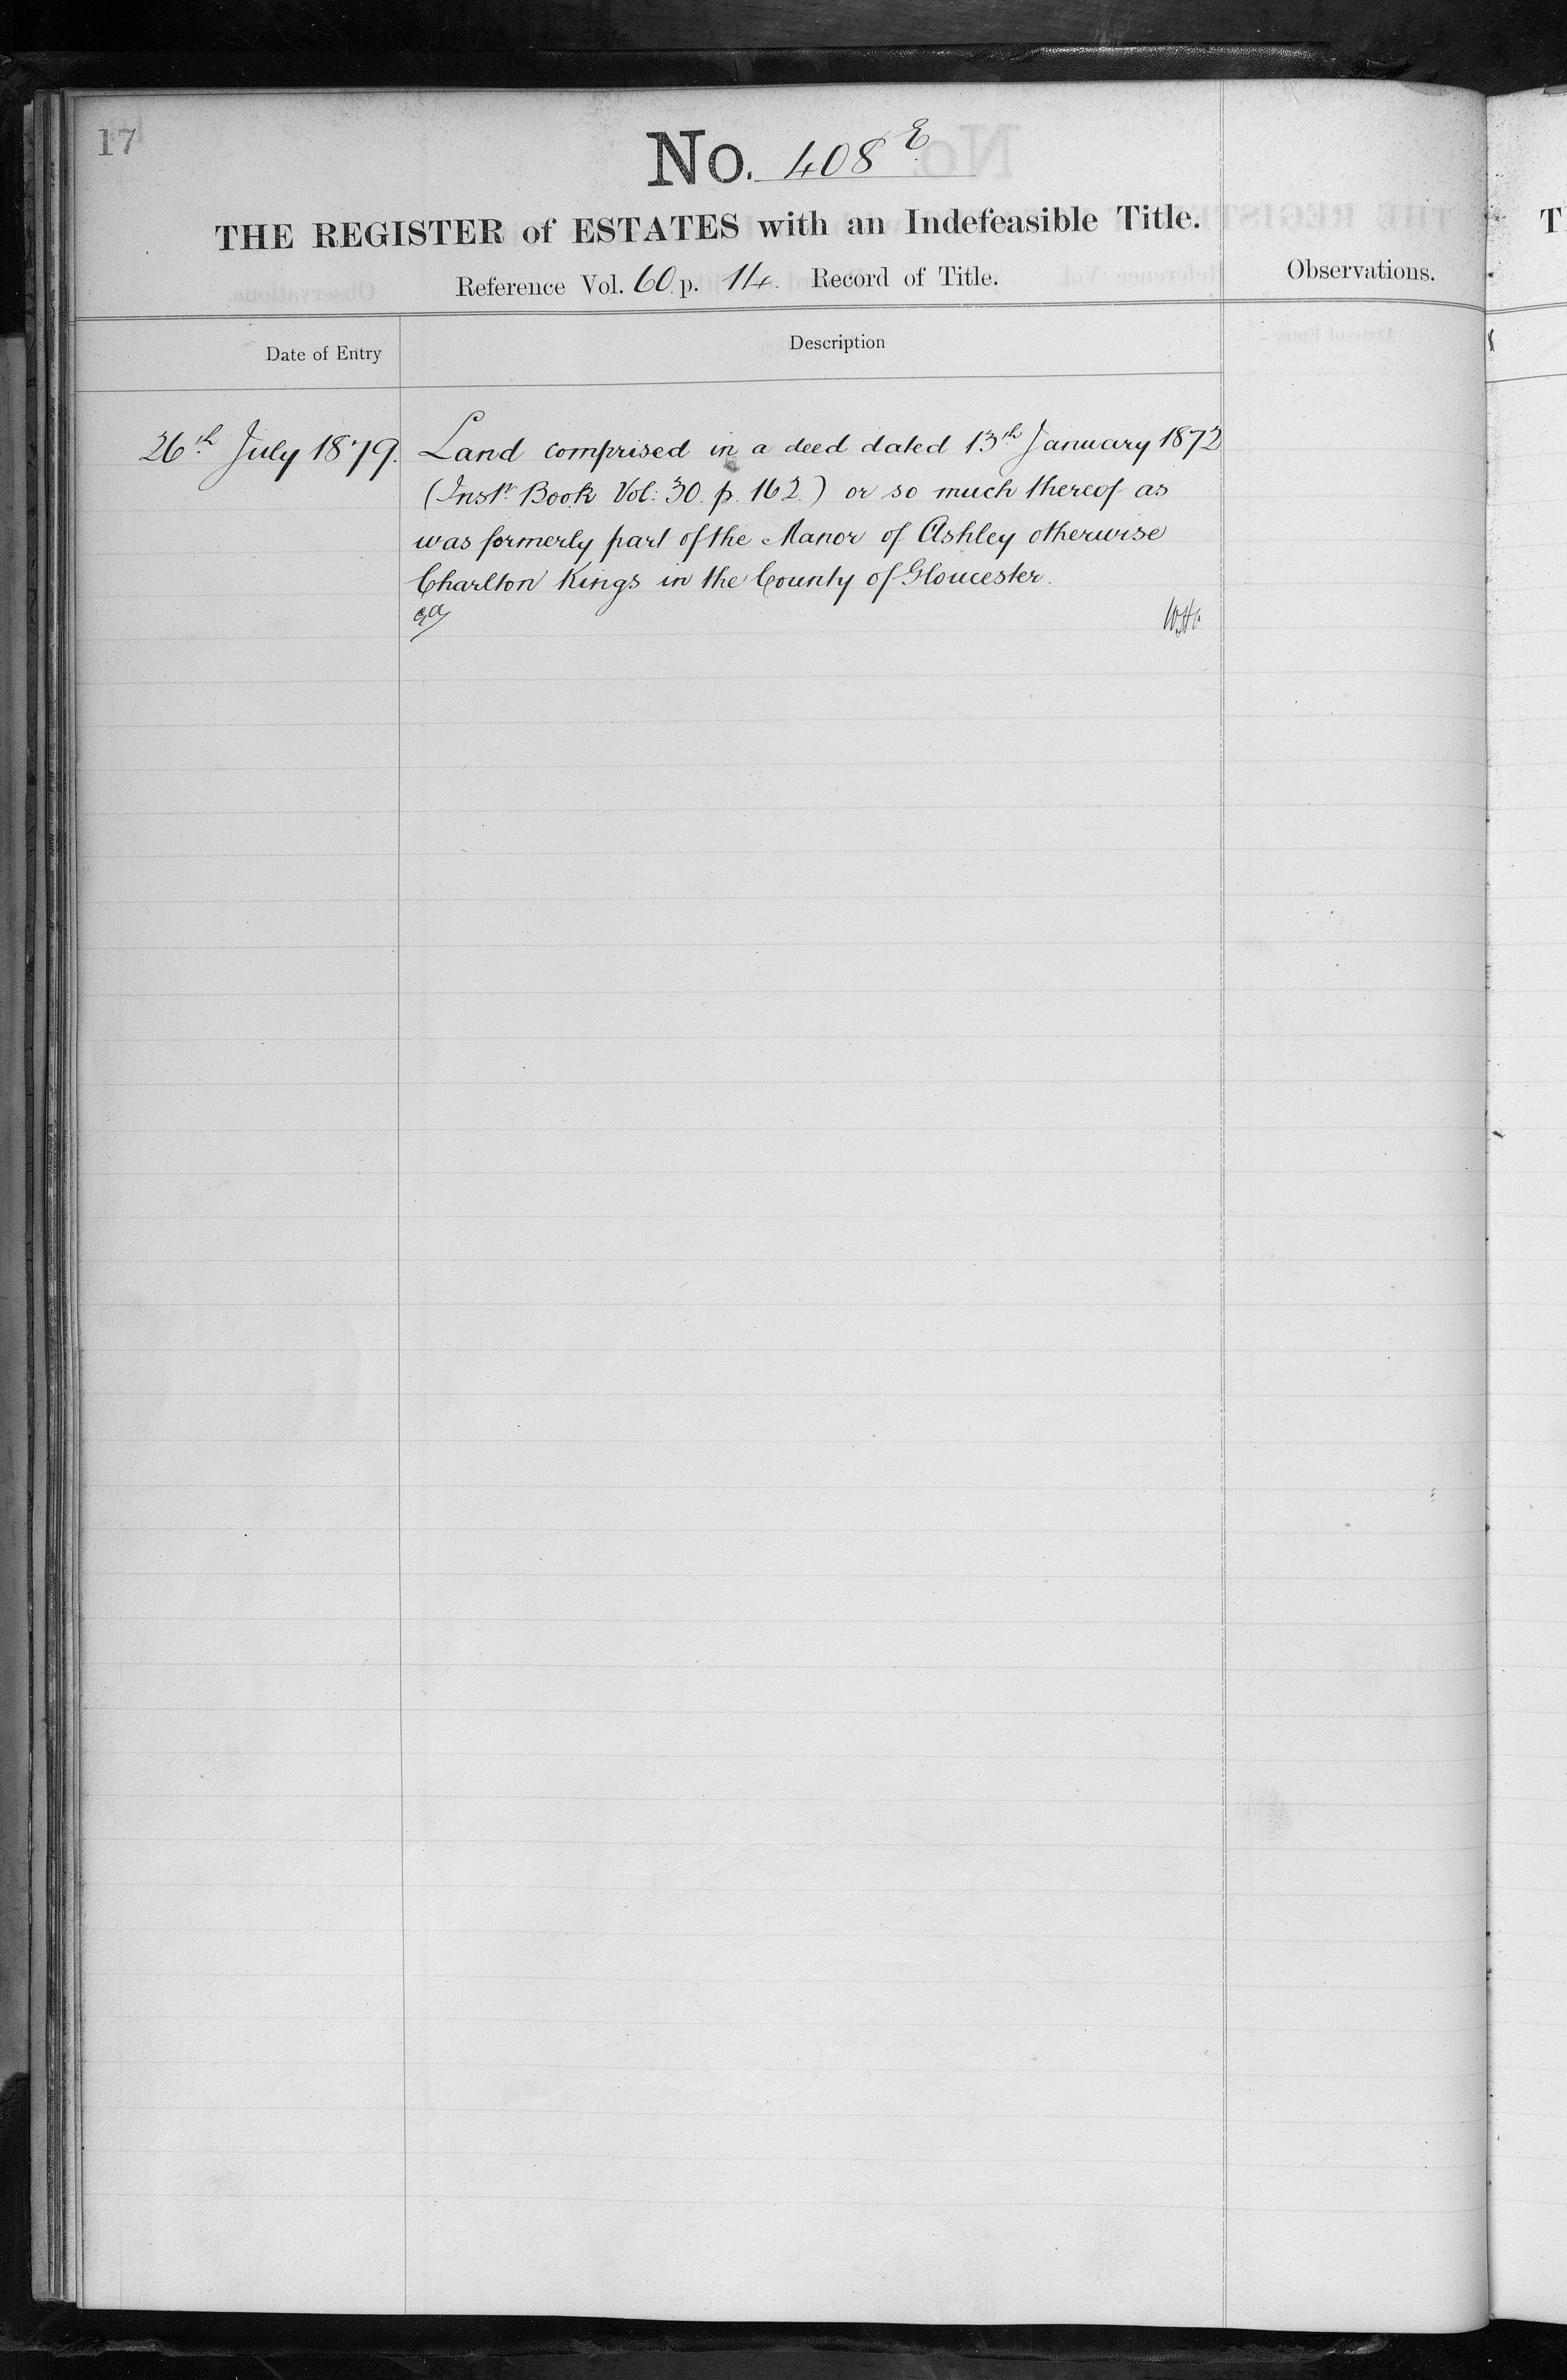 17
No. 408 E
THE REGISTER of ESTATES with an Indefeasible Title.
Reference Vol. 60. p. 14. Record of Title.
Observations.
Date of Entry
Description
26th July 1879.
Land comprised in a deed dated 13th January 1872
(Instr. Book Vol: 30. p. 162.) or so much thereof as
was formerly part of the Manor of Ashley otherwise
Charlton Kings in the County of Gloucester.
T